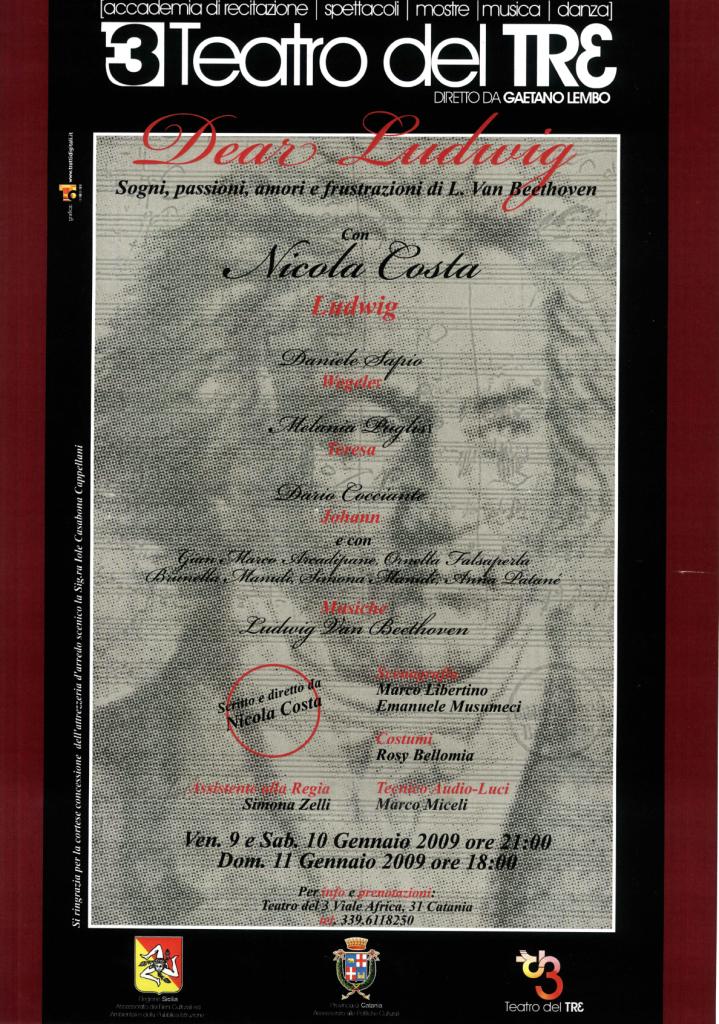 [accademia di recitazione | spettacoli | mostre | musica | danza]
3 Teatro del TRE
DIRETTO DA GAETANO LEMBO
Dear Ludwig
Sogni, passioni, amori e frustrazioni di L. Van Beethoven
Con
Nicola Costa
Ludwig
Daniele Sapio
Wegeler
Melania Puglisi
Teresa
Dario Cocciante
Johann
e con
Gian Marco Arcadipane, Ornella Falsaperla
Brunella Manuli, Simona Manuli, Anna Patané
Musiche
Ludwig Van Beethoven
Scritto e diretto da
Nicola Costa
Scenografie
Marco Libertino
Emanuele Musumeci
Costumi
Rosy Bellomia
Assistente alla Regia
Simona Zelli
Tecnico Audio-Luci
Marco Miceli
Ven. 9 e Sab. 10 Gennaio 2009 ore 21:00
Dom. 11 Gennaio 2009 ore 18:00
Per info e prenotazioni:
Teatro del 3 Viale Africa, 31 Catania
tel. 339.6118250
grafica:
www.trattidigitali.it
Si ringrazia per la cortese concessione dell'attrezzeria d'arredo scenico la Sig.ra Iole Casabona Cappellani
Regione Sicilia
Assessorato dei Beni Culturali ed
Ambientali e della Pubblica Istruzione
Provincia di Catania
Assessorato alle Politiche Culturali
3
Teatro del TRE